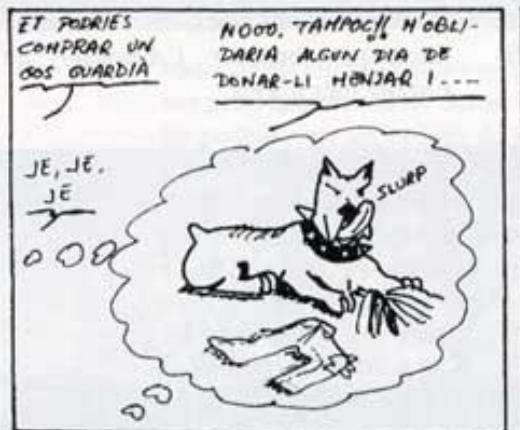 ET PODRIES
COMPRAR UN
GOS GUARDIÀ
NOOO, TAMPOC!! M'OBLI-
DARIA ALGUN DIA DE
DONAR-LI MENJAR I....
JE, JE.
JE
SLURP